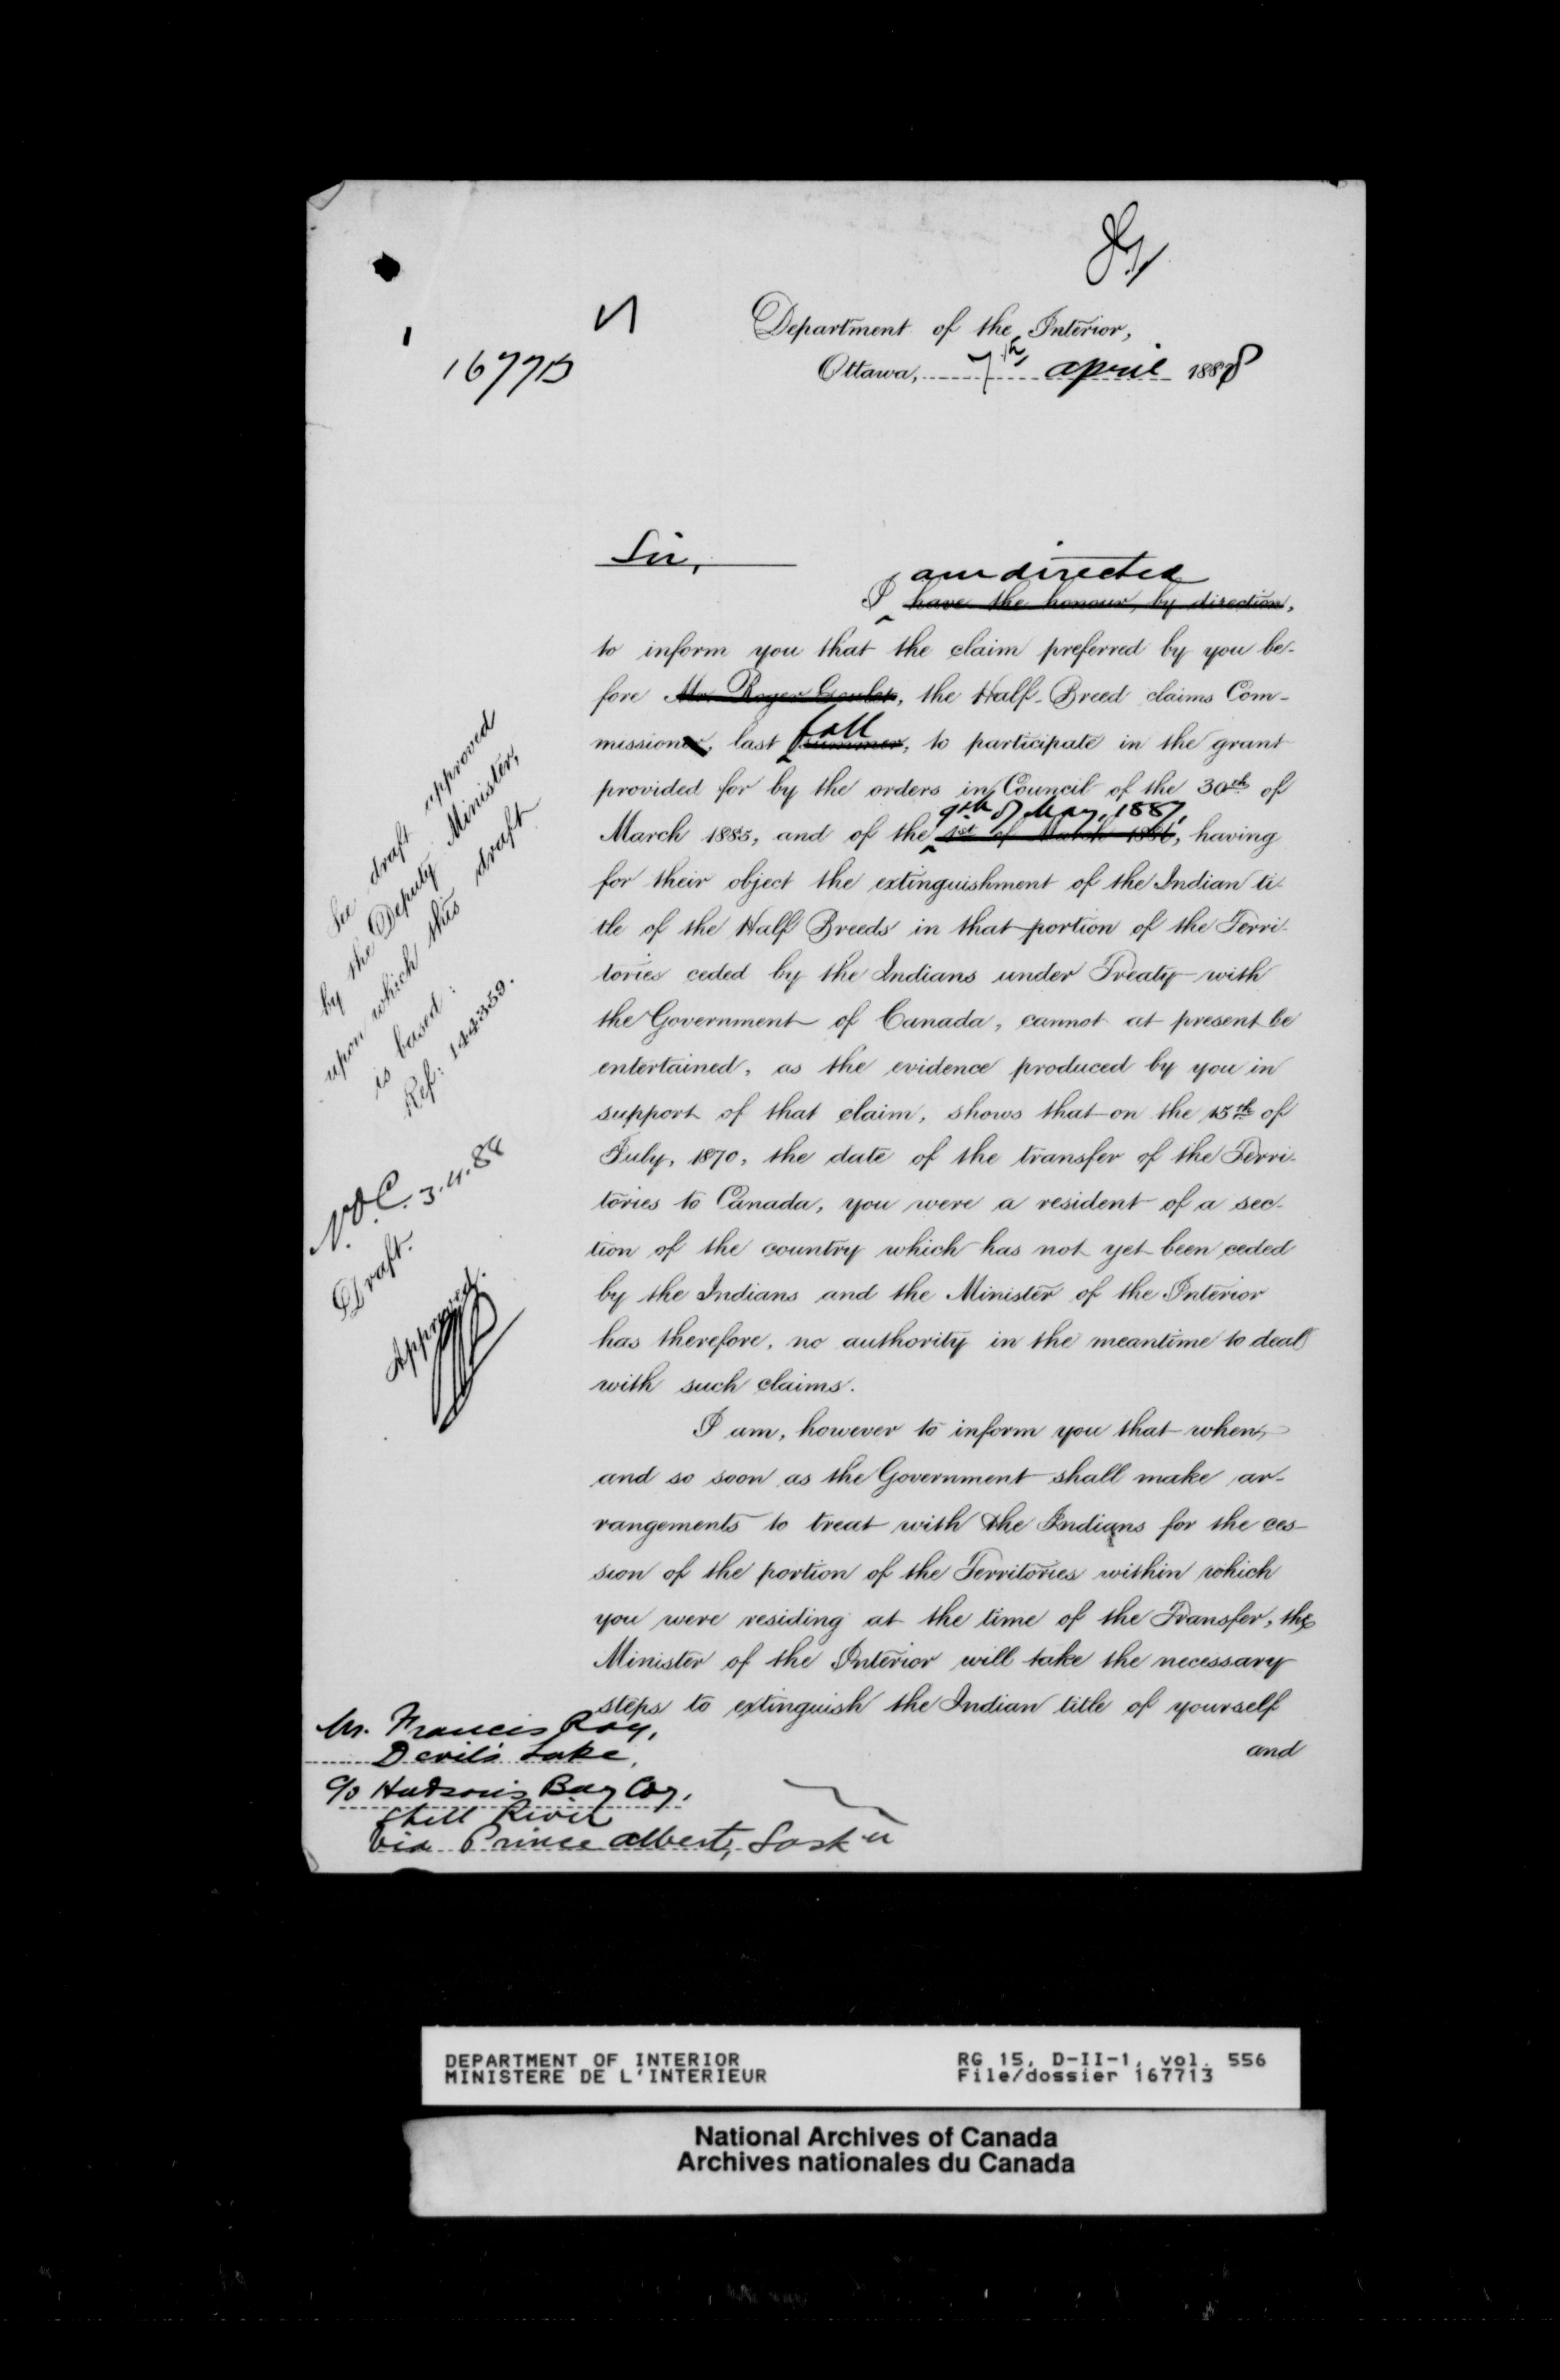 84
Department of the Interior,
167713
Ottawa, 7th april 1888
Sir,
am directed
I have the honour, by direction,
to inform you that the claim preferred by you be-
fore Mr. Roger Goulet, the Half-Breed claims Com-
fall
missioner, last summer, to participate in the grant
provided for by the orders in Council of the 30th of
9th of May, 1887,
March 1885, and of the 1st of March 1886, having
for their object the extinguishment of the Indian ti-
tle of the Half Breeds in that portion of the Terri-
tories ceded by the Indians under Treaty with
the Government of Canada, cannot at present be
entertained, as the evidence produced by you in
support of that claim, shows that on the 15th of
July, 1870, the date of the transfer of the Terri-
tories to Canada, you were a resident of a sec-
tion of the country which has not yet been ceded
by the Indians and the Minister of the Interior
has therefore, no authority in the meantime to deal
with such claims.
I am, however to inform you that when,
and so soon as the Government shall make ar-
rangements to treat with the Indians for the ces-
sion of the portion of the Territories within which
you were residing at the time of the Transfer, the
Minister of the Interior will take the necessary
steps to extinguish the Indian title of yourself
and
See draft approved
by the Deputy Minister,
upon which this draft
is based:
Ref: 144359.
N.O.C. 3.4.88
Draft.
Approved.
Mr. Francis Roy,
Devil's Lake,
c/o Hudson's Bay Coy,
Shell River
Via Prince Albert, Sask'n
DEPARTMENT OF INTERIOR
MINISTERE DE L'INTERIEUR
RG 15, D-II-1, vol. 556
File/dossier 167713
National Archives of Canada
Archives nationales du Canada